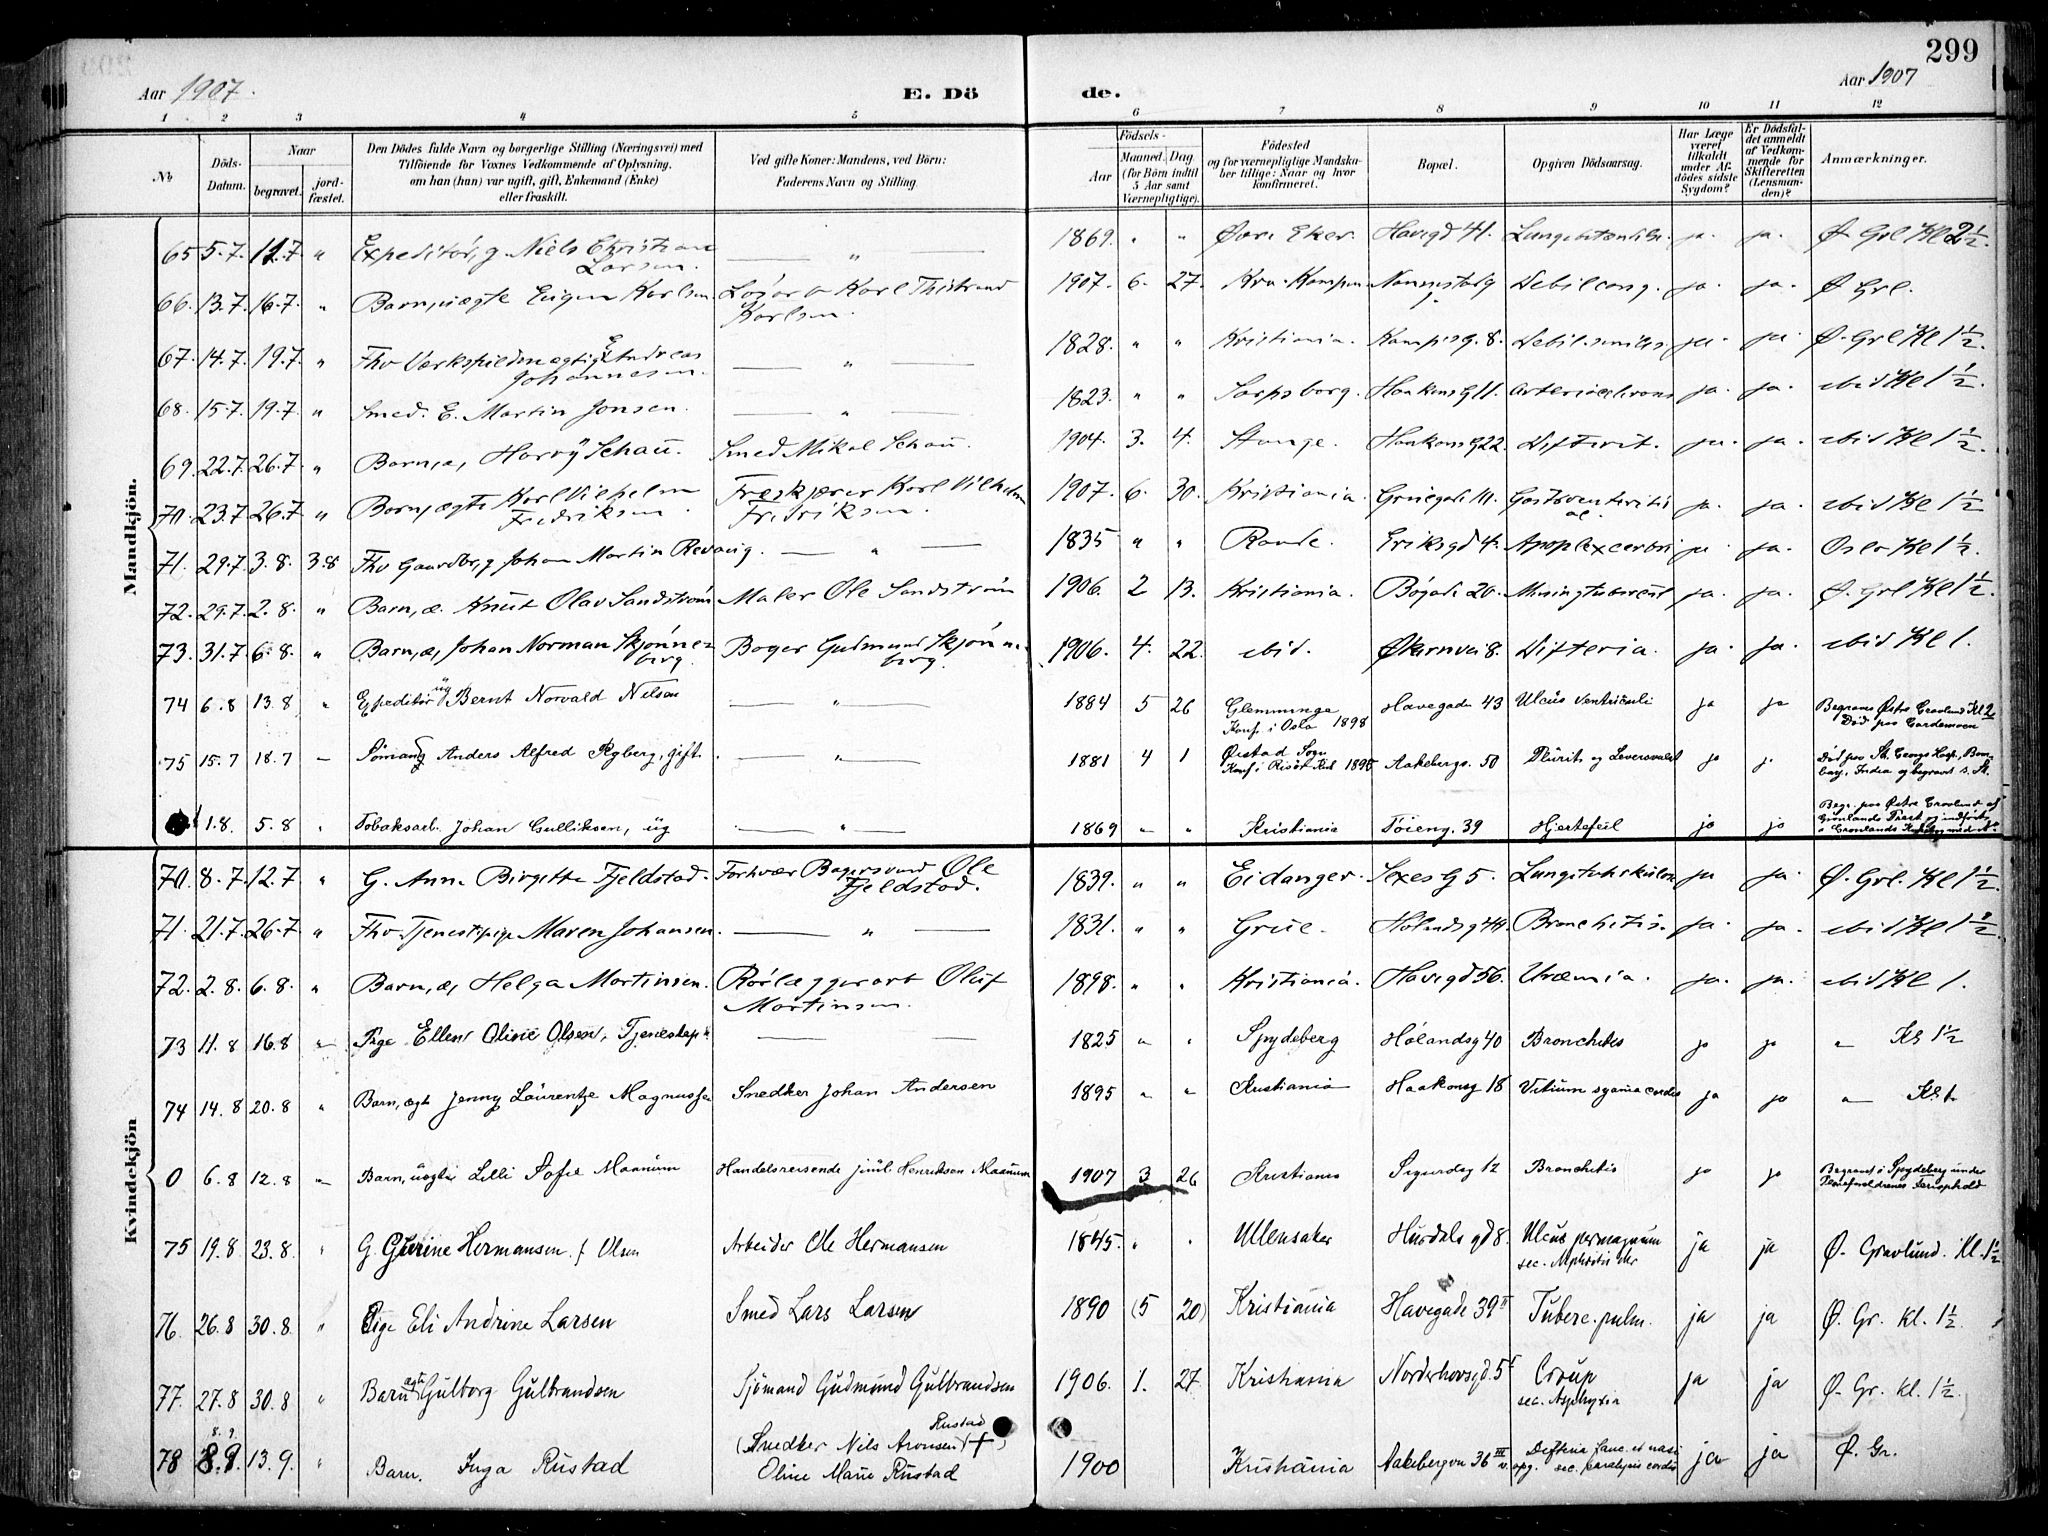 299
Aar 1907.
E. Dö
de.
Aar 1907
1 2 3 4 5 6 7 8 9 10 11 12
No
Döds-Datum.
Naar
begravet.
jord-fæstet.
Den Dödes fulde Navn og borgerlige Stilling (Næringsvei) med
Tilföiende for Voxnes Vedkommende af Oplysning,
om han (hun) var ugift, gift, Enkemand (Enke)
eller fraskilt.
Ved gifte Koner: Mandens, ved Börn:
Faderens Navn og Stilling
Födsels-
Aar
Maaned. Dag
(for Börn indtil
5 Aar samt
Værnepligtige).
Födested
og for værnepligtige Mandska-
ber tillige: Naar og hvor
konfirmeret.
Bopæl.
Opgiven Dödsaarsag.
Har Læge
været
tilkaldt
under Af-
dödes sidste
Sygdom?
Er Dödsfal-
det anmeldt
af Vedkom-
mende for
Skifteretten
(Lensman-
den)?
Anmærkninger.
Mandkjön.
65 5.7. 11.7 " Expeditör, g. Niels Christian Larsen. — " — 1869. " " Øvre Eker. Havegd 41. ja. ja. Ø. Grl Kl 2½.
66. 13.7. 16.7. " Barn, uægte Eugen Karlsen. Karl Thistrand Karlsen. 1907. 6. 27. Kra. Kampen Debil cong. ja. ja. Ø Grl.
67. 14.7. 19.7. " Fhv E. Andreas Johannesen. — " — 1828. " " Kristiania. Kampensg. 8. Debil. senilis. ja. ja. Ø. Grl Kl 1½.
68. 15.7. 19.7. " Smed. E. Martin Jonsen. — " — 1823. " " Sarpsborg. Haakonsg 11. ja. ja. ibid Kl 1½.
69. 22.7. 26.7. " Barn, æ, Harry Schau. Smed Mikal Schau. 1904. 3. 4. Stange. Haakonsg 22. Difterit. ja. ja. ibid Kl 1½.
70. 23.7. 26.7. " Barn, ægte Karl Vilhelm Fredriksen. Træskjærer Karl Vilhelm Fredriksen. 1907. 6. 30. Kristiania. Gruegade 11. Gastroenteritis ac. ja. ja. ibid Kl 1½
71. 29.7. 3.8. 3.8 Fhv Gaardbr, g Johan Martin Revaug. — " — 1835 " " Raade. Eriksgd 4. Apoplex cerebri ja. ja. Oslo Kl 1½.
72. 29.7. 2.8. " Barn, æ. Knut Olav Sandström Maler Ole Sandström 1906. 2 13. Kristiania. Bøgade 20. ja. ja. Ø. Grl Kl 1½.
73. 31.7. 6.8. " Barn, æ, Johan Norman Skjønneberg. Bager Gudmund Skjønneberg. 1906. 4. 22. ibid. Økernvei 8. Difteria. ja. ja. ibid Kl 1.
74 6.8 13.8 " Expeditör ug Bernt Norvald Nilsen — " — 1884 5 26 Glemminge Konf. i Oslo 1898 Havegaden 43 Ulcus ventriculi ja ja Begraves Østre Gravlund Kl 2 Död paa Gardemoen
75 15.7 18.7 — Sömand Anders Alfred Ryberg, gift. — " — 1881 4 1 Øistad Sogn Konf. i Risör Kirk 1895 Aakebergv. 50 Pleurit og Leversvulst ja ja Död paa St. Georgs Hosp., Bombay, India og begravet s. St.
1.8. 5.8 " Tobaksarb. Johan Gulliksen, ug — " — 1869 " " Kristiania Töieng. 39 Hjertefeil ja ja Begr. paa Østre Gravlund af Grönlands Prest og indföres i Grönlands
Kvindekjön
70. 8.7. 12.7 " G. Anne Birgitte Fjeldstad. Forhvær. Bogersvend Ole Fjeldstad. 1839. " " Eidanger. Sexes G 5. Lungetuberkulose ja ja. Ø. Grl. Kl 1½
71. 21.7. 26.7 " Fhv. Tjenestpige Maren Johansen. — " — 1831. " " Grue. Hölandsg 44. Bronchitis. ja. ja. ibid Kl 1½.
72. 2.8. 6.8. " Barn, æ, Helga Martinsen. Rörlæggerarb Oluf Martinsen. 1898. " " Kristiania. Havegd 56. Uræmia. ja. ja. ibid Kl 1.
73 11.8 16.8 " Pige Ellen Olivie Olsen, Tjenestep — — 1825 " " Spydeberg Hölandsg 40 Bronchitis ja ja " Kl 1½
74 14.8 20.8 " Barn, ægt Jenny Laurentze Magnussen Snedker Johan Andersen 1895 " " Kristiania Haakonsg 18 Vitium cordis ja ja " Kl 1.
0 6.8 12.8 " Barn, uægte Lilli Sofie Maanum Handelsreisende Henriksen Maanum 1907 3 26 Kristiania Sigurdsg 12 Bronchitis ja ja Begravet i Spydeberg under
75 19.8 23.8. " G. Gurine Hermansen f Olsen Arbeider Ole Hermansen 1845. " " Ullensaker Hurdalsgd 8. Ulcus permagnum sec. Nephritis chr ja ja Ø. Gravlund. Kl. 1½
76. 26.8 30.8. " Pige Eli Andrine Larsen Smed Lars Larsen 1890 (5 20) Kristiania Havegade 39 II Tuberc. pulm. ja ja Ø. Gr. kl. 1½.
77. 27.8 30.8 " Barn ægte Gulborg Gulbrandsen Sjömand Gudmund Gulbrandsen 1906. 1. 27. Kristiania Norderhovsgd. 5 I Croup sec. Asphyxia ja ja Ø. Gr. kl. 1½.
78 8.9. 8.9 13.9. " Barn. Inga Rustad (Snedker Nils Aronsen Rustad †) Oline Marie Rustad 1900 Kristiania Aakebergvn 36 III opg. Difteria fauc. et nasi sec. paralysis cordis ja ja Ø. Gr.